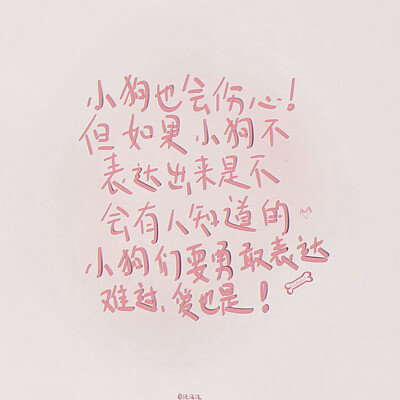 小狗也会伤心!
但如果小狗不
表达出来是不
会有人知道的~
小狗们要勇敢表达
难过,爱也是!